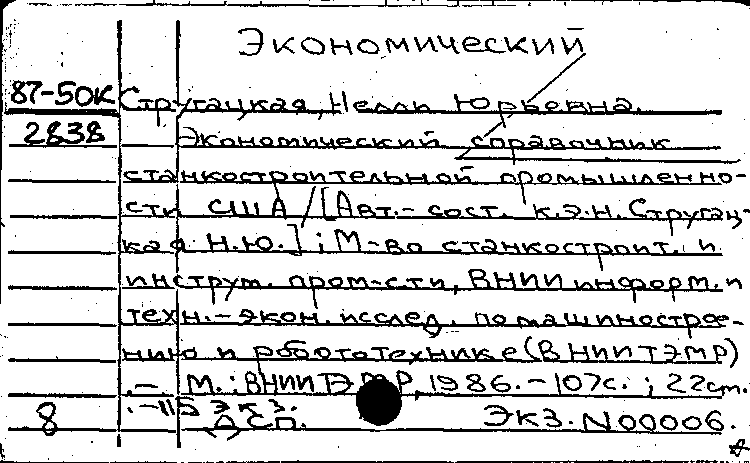 Экономический
87-50к Стругацкая, Нелли Юрьевна.
2838 Экономический справочник
станкостроительной промышленно-
сти США / [Авт.- сост. к.э.н. Стругац-
кая Н.Ю.] ; М-во станкостроит. и
инструм. пром-сти, ВНИИ информ. и
техн.-экон. исслед. по машинострое-
нию и робототехнике (ВНИИТЭМР)
.- М.: ВНИИТЭМР, 1986. - 107с. ; 22см.
.-115 экз.
8 ДСП. Экз. N00006.